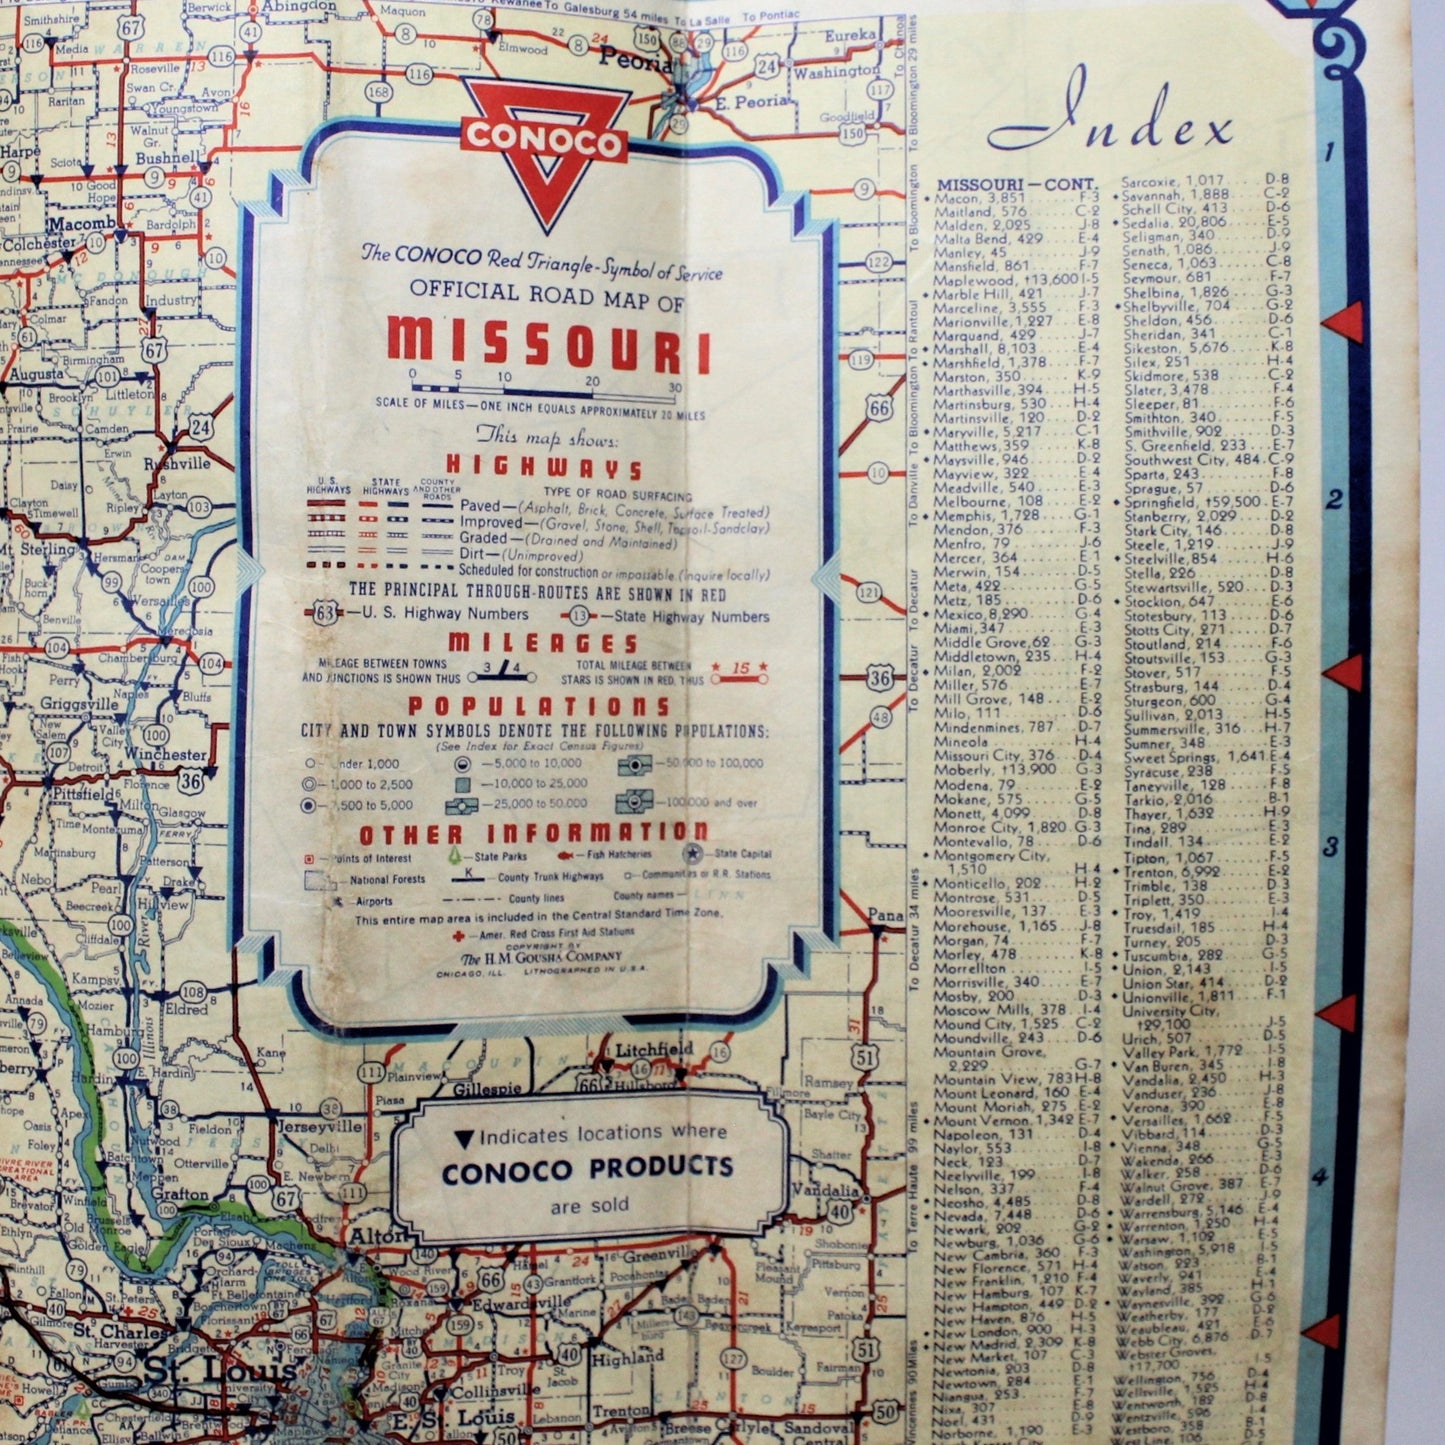 CONOCO
The CONOCO Red Triangle-Symbol of Service
OFFICIAL ROAD MAP OF
MISSOURI
0 5 10 20 30
SCALE OF MILES—ONE INCH EQUALS APPROXIMATELY 20 MILES
This map shows:
HIGHWAYS
U.S. HIGHWAYS
STATE HIGHWAYS
COUNTY AND OTHER ROADS
TYPE OF ROAD SURFACING
Paved—(Asphalt, Brick, Concrete, Surface Treated)
Improved—(Gravel, Stone, Shell, Topsoil-Sandclay)
Graded—(Drained and Maintained)
Dirt—(Unimproved)
Scheduled for construction or impassable (inquire locally)
THE PRINCIPAL THROUGH-ROUTES ARE SHOWN IN RED
63—U. S. Highway Numbers 13—State Highway Numbers
MILEAGES
MILEAGE BETWEEN TOWNS
AND JUNCTIONS IS SHOWN THUS 3 4
TOTAL MILEAGE BETWEEN
STARS IS SHOWN IN RED, THUS 15
POPULATIONS
CITY AND TOWN SYMBOLS DENOTE THE FOLLOWING POPULATIONS:
(See Index for Exact Census Figures)
under 1,000 —5,000 to 10,000 —50,000 to 100,000
1,000 to 2,500 —10,000 to 25,000
2,500 to 5,000 —25,000 to 50,000 —100,000 and over
OTHER INFORMATION
Points of Interest —State Parks —Fish Hatcheries —State Capital
National Forests K —County Trunk Highways —Communities on R.R. Stations
Airports County lines County names—
This entire map area is included in the Central Standard Time Zone.
—Amer. Red Cross First Aid Stations
COPYRIGHT BY
The H.M. GOUSHA COMPANY
CHICAGO, ILL. LITHOGRAPHED IN U.S.A.
Indicates locations where
CONOCO PRODUCTS
are sold
Index
MISSOURI—CONT.
Macon, 3,851 F-3
Maitland, 576 C-2
Malden, 2,025 J-8
Malta Bend, 429 E-4
Manley, 45 J-9
Mansfield, 861 F-7
Maplewood, †13,600 I-5
Marble Hill, 421 J-7
Marceline, 3,555 F-3
Marionville, 1,227 E-8
Marquand, 429 J-7
Marshall, 8,103 E-4
Marshfield, 1,378 F-7
Marston, 350 K-9
Marthasville, 394 H-5
Martinsburg, 530 H-4
Martinsville, 120 D-2
Maryville, 5,217 C-1
Matthews, 359 K-8
Maysville, 946 D-2
Mayview, 322 E-4
Meadville, 540 E-3
Melbourne, 108 E-2
Memphis, 1,728 G-1
Mendon, 376 F-3
Menfro, 79 J-6
Mercer, 364 E-1
Merwin, 154 D-5
Meta, 422 G-5
Metz, 185 D-6
Mexico, 8,290 G-4
Miami, 347 E-3
Middle Grove, 62 G-3
Middletown, 235 H-4
Milan, 2,002 F-2
Miller, 576 E-7
Mill Grove, 148 E-2
Milo, 111 D-6
Mindenmines, 787 D-7
Mineola H-4
Missouri City, 376 D-4
Moberly, †13,900 G-3
Modena, 79 E-2
Mokane, 575 G-5
Monett, 4,099 D-8
Monroe City, 1,820 G-3
Montevallo, 78 D-6
Montgomery City,
1,510 H-4
Monticello, 202 H-2
Montrose, 531 D-5
Mooresville, 137 E-3
Morehouse, 1,165 J-8
Morgan, 74 F-7
Morley, 478 K-8
Morrellton I-5
Morrisville, 340 E-7
Mosby, 200 D-3
Moscow Mills, 378 I-4
Mound City, 1,525 C-2
Moundville, 243 D-6
Mountain Grove,
2,229 G-7
Mountain View, 783 H-8
Mount Leonard, 160 E-4
Mount Moriah, 275 E-2
Mount Vernon, 1,342 E-7
Napoleon, 131 D-4
Naylor, 553 I-8
Neck, 123 D-7
Neelyville, 199 I-8
Nelson, 337 F-4
Neosho, 4,485 D-8
Nevada, 7,448 D-6
Newark, 202 G-2
Newburg, 1,036 G-6
New Cambria, 360 F-3
New Florence, 571 H-4
New Franklin, 1,210 F-4
New Hamburg, 107 K-7
New Hampton, 449 D-2
New Haven, 876 H-5
New London, 900 H-3
New Madrid, 2,309 K-8
New Market, 107 C-3
Newtonia, 203 D-8
Newtown, 284 E-1
Niangua, 253 F-7
Nixa, 307 E-8
Noel, 431 D-9
Norborne, 1,190 E-3
Sarcoxie, 1,017 D-8
Savannah, 1,888 C-2
Schell City, 413 D-6
Sedalia, 20,806 E-5
Seligman, 340 D-9
Senath, 1,086 J-9
Seneca, 1,063 C-8
Seymour, 681 F-7
Shelbina, 1,826 G-3
Shelbyville, 704 G-2
Sheldon, 456 D-6
Sheridan, 341 C-1
Sikeston, 5,676 K-8
Silex, 251 H-4
Skidmore, 538 C-2
Slater, 3,478 F-4
Sleeper, 81 F-6
Smithton, 340 F-5
Smithville, 902 D-3
S. Greenfield, 233 E-7
Southwest City, 484 C-9
Sparta, 243 F-8
Sprague, 57 D-6
Springfield, †59,500 E-7
Stanberry, 2,029 D-2
Stark City, 146 D-8
Steele, 1,219 J-9
Steelville, 854 H-6
Stella, 226 D-8
Stewartsville, 520 D-3
Stockton, 647 E-6
Stotesbury, 113 D-6
Stotts City, 271 D-7
Stoutland, 214 F-6
Stoutsville, 153 G-3
Stover, 517 F-5
Strasburg, 144 D-4
Sturgeon, 600 G-4
Sullivan, 2,013 H-5
Summersville, 316 H-7
Sumner, 348 E-3
Sweet Springs, 1,641 E-4
Syracuse, 238 F-5
Taneyville, 128 F-8
Tarkio, 2,016 B-1
Thayer, 1,632 H-9
Tina, 289 E-3
Tindall, 134 E-2
Tipton, 1,067 F-5
Trenton, 6,992 E-2
Trimble, 138 D-3
Triplett, 350 E-3
Troy, 1,419 I-4
Truesdail, 185 H-4
Turney, 205 D-3
Tuscumbia, 282 G-5
Union, 2,143 I-5
Union Star, 414 D-2
Unionville, 1,811 F-1
University City,
†29,100 J-5
Urich, 507 D-5
Valley Park, 1,772 I-5
Van Buren, 345 I-8
Vandalia, 2,450 H-3
Vanduser, 236 J-8
Verona, 390 E-8
Versailles, 1,662 F-5
Vibbard, 114 D-3
Vienna, 348 G-5
Wakenda, 266 E-3
Walker, 258 D-6
Walnut Grove, 387 E-7
Wardell, 272 J-9
Warrensburg, 5,146 E-4
Warrenton, 1,250 H-4
Warsaw, 1,102 E-5
Washington, 5,918 I-5
Watson, 223 B-1
Waverly, 941 E-4
Wayland, 385 H-1
Waynesville, 392 G-6
Weatherby, 177 D-2
Weaubleau, 421 E-6
Webb City, 6,876 D-7
Webster Groves,
†17,700 I-5
Wellington, 756 D-4
Wellsville, 1,525 H-4
Wentworth, 182 D-8
Wentzville, 596 I-4
Westboro, 358 B-1
West Line, 106 D-5
1
2
3
4
Abingdon
Berwick
Maquon
Elmwood
Peoria
E. Peoria
Eureka
Washington
Goodfield
Media
Roseville
Raritan
Swan Cr.
Avon
Youngstown
Walnut Gr.
Bushnell
Sciota
Good Hope
Macomb
Bardolph
Colchester
Fandon
Industry
Colmar
Birmingham
Augusta
Brooklyn
Littleton
Camden
Erwin
Rushville
Daisy
Layton
Ripley
Clayton
Timewell
Mt. Sterling
Hersman
Cooperstown
Versailles
Benville
Meredosia
Chambersburg
Perry
Naples
Bluffs
Griggsville
New Salem
Valley City
Winchester
Detroit
Florence
Pittsfield
Milton
Glasgow
Time
Montezuma
Martinsburg
Patterson
Nebo
Pearl
Drake
Hillview
Beecreek
Cliffdale
Belleview
Kampsville
Mozier
Eldred
Hamburg
Kane
Hardin
E. Hardin
Fieldon
Jerseyville
Delhi
Otterville
E. Newbern
Nutwood
Batchtown
Meppen
Grafton
Elsah
Brussels
Golden Eagle
Portage Des Sioux
Alton
Wood River
Roxana
Edwardsville
St. Charles
Florissant
St. Louis
E. St. Louis
Collinsville
Granite City
Madison
Troy
St. Jacob
Highland
Trenton
Lebanon
Breese
Carlyle
Sandoval
Greenville
Pocahontas
Grantfork
Hamel
Pleasant Mound
Pittsburg
Vernon
Patoka
Keyesport
Boulder
Fairman
Beaver Creek
Shobonier
Vandalia
Shafter
Bayle City
Ramsey
Fillmore
Pana
Litchfield
Hillsboro
Gillespie
Plainview
Piasa
To Galesburg 54 miles To La Salle To Pontiac
To Bloomington 29 miles
To Bloomington
To Rantoul
To Danville
To Decatur
To Decatur 34 miles
To Terre Haute 99 miles
Vincennes 90 Miles